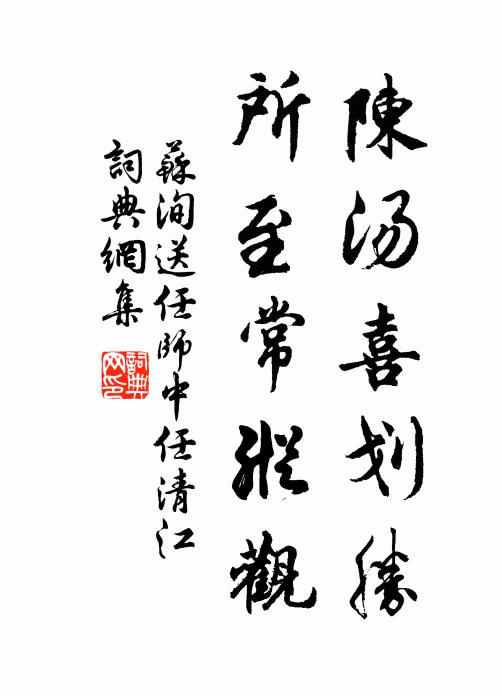 陳湯喜划勝
所至常縱觀
蘇洵送任師中任清江
詞典網集
詞典网印